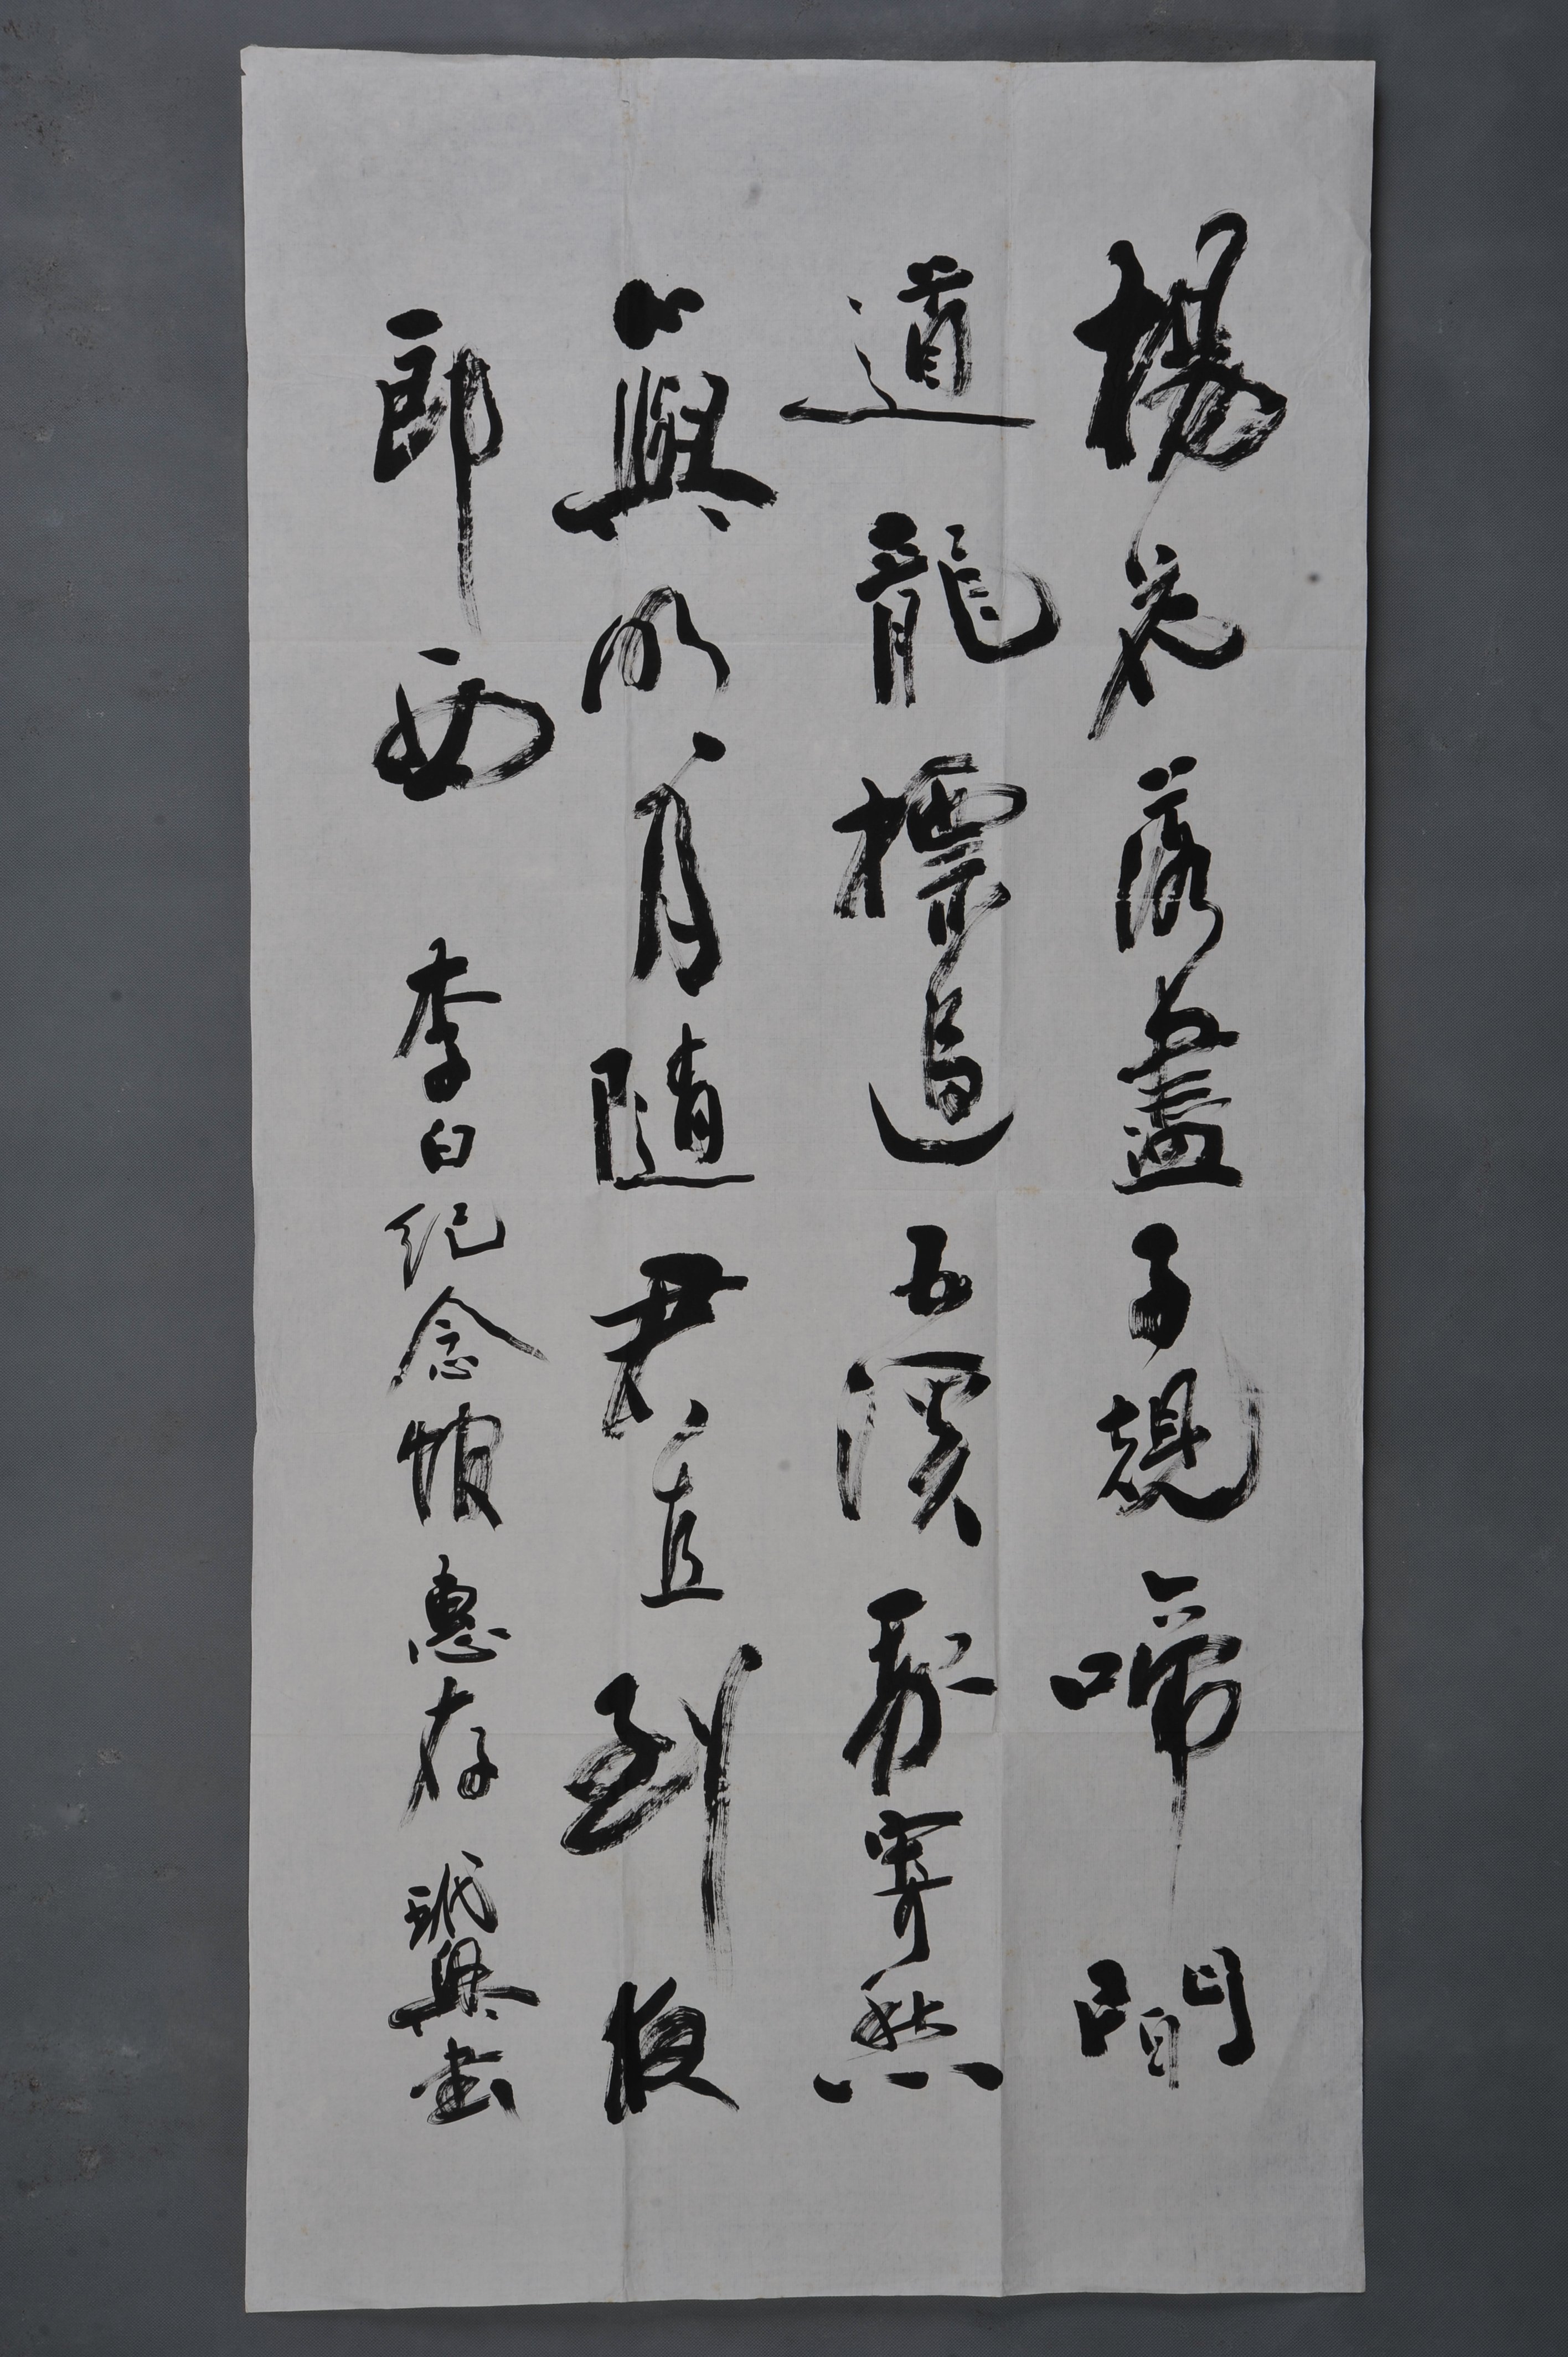 楊花落盡子規啼聞
道龍標過五溪我寄愁
心與明月隨君直到夜
郎西 李白纪念館惠存 興书